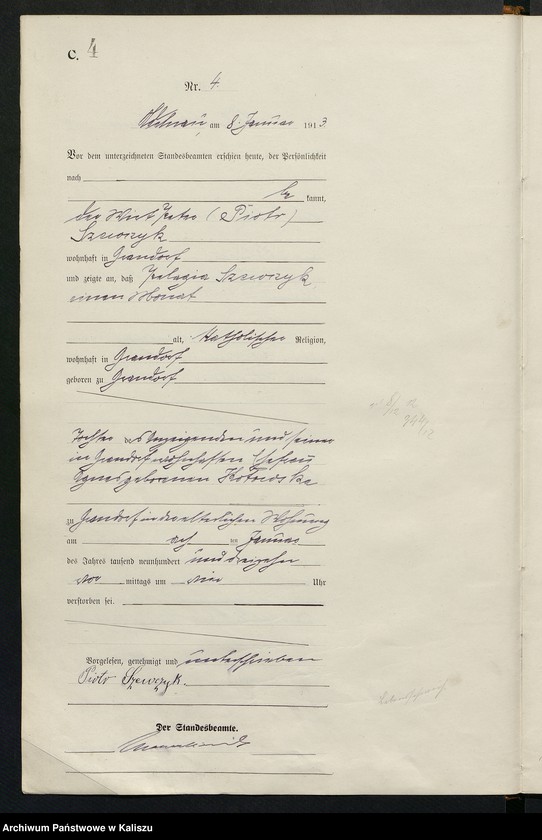 C. 4
Nr. 4.
am 8. Januar 1913
Vor dem unterzeichneten Standesbeamten erschien heute, der Persönlichkeit
nach
be kannt,
der Wirt Peter (Piotr)
Szewczyk
wohnhaft in Grandorf
und zeigte an, daß Pelagia Szewczyk
einen Monat
alt, katholischer Religion,
wohnhaft in Grandorf
geboren zu Grandorf
Tochter des Anzeigenden und seiner
in Grandorf wohnhaften Ehefrau
Agnes geborenen
zu Grandorf in der elterlichen Wohnung
am acht en Januar
des Jahres tausend neunhundert und dreizehn
vor mittags um vier Uhr
verstorben sei.
Vorgelesen, genehmigt und unterschrieben
Piotr Szewczyk.
Der Standesbeamte.
Archiwum Państwowe w Kaliszu